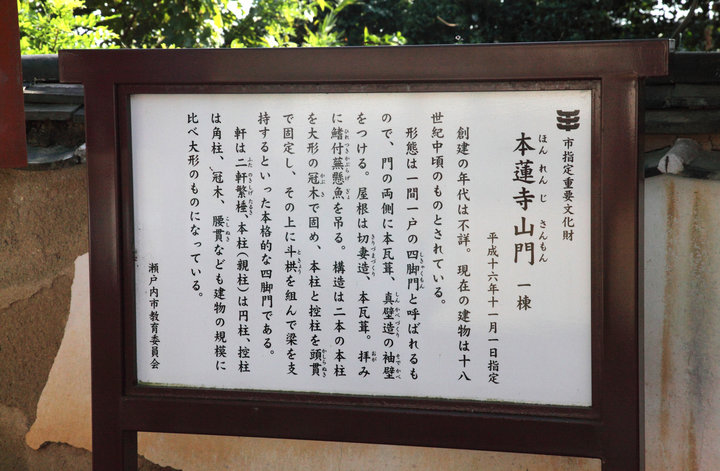 市指定重要文化財
本蓮寺山門 一棟
ほんれんじさんもん
平成十六年十一月一日指定
創建の年代は不詳。現在の建物は十八
世紀中頃のものとされている。
形態は一間一戸の四脚門と呼ばれるも
ので、門の両側に本瓦葺、真壁造の袖壁
をつける。屋根は切妻造、本瓦葺。拝み
に鰭付蕪懸魚を吊る。構造は二本の本柱
を大形の冠木で固め、本柱と控柱を頭貫
で固定し、その上に斗栱を組んで梁を支
持するといった本格的な四脚門である。
軒は二軒繁棰、本柱(親柱)は円柱、控柱
は角柱、冠木、腰貫なども建物の規模に
比べ大形のものになっている。
瀬戸内市教育委員会